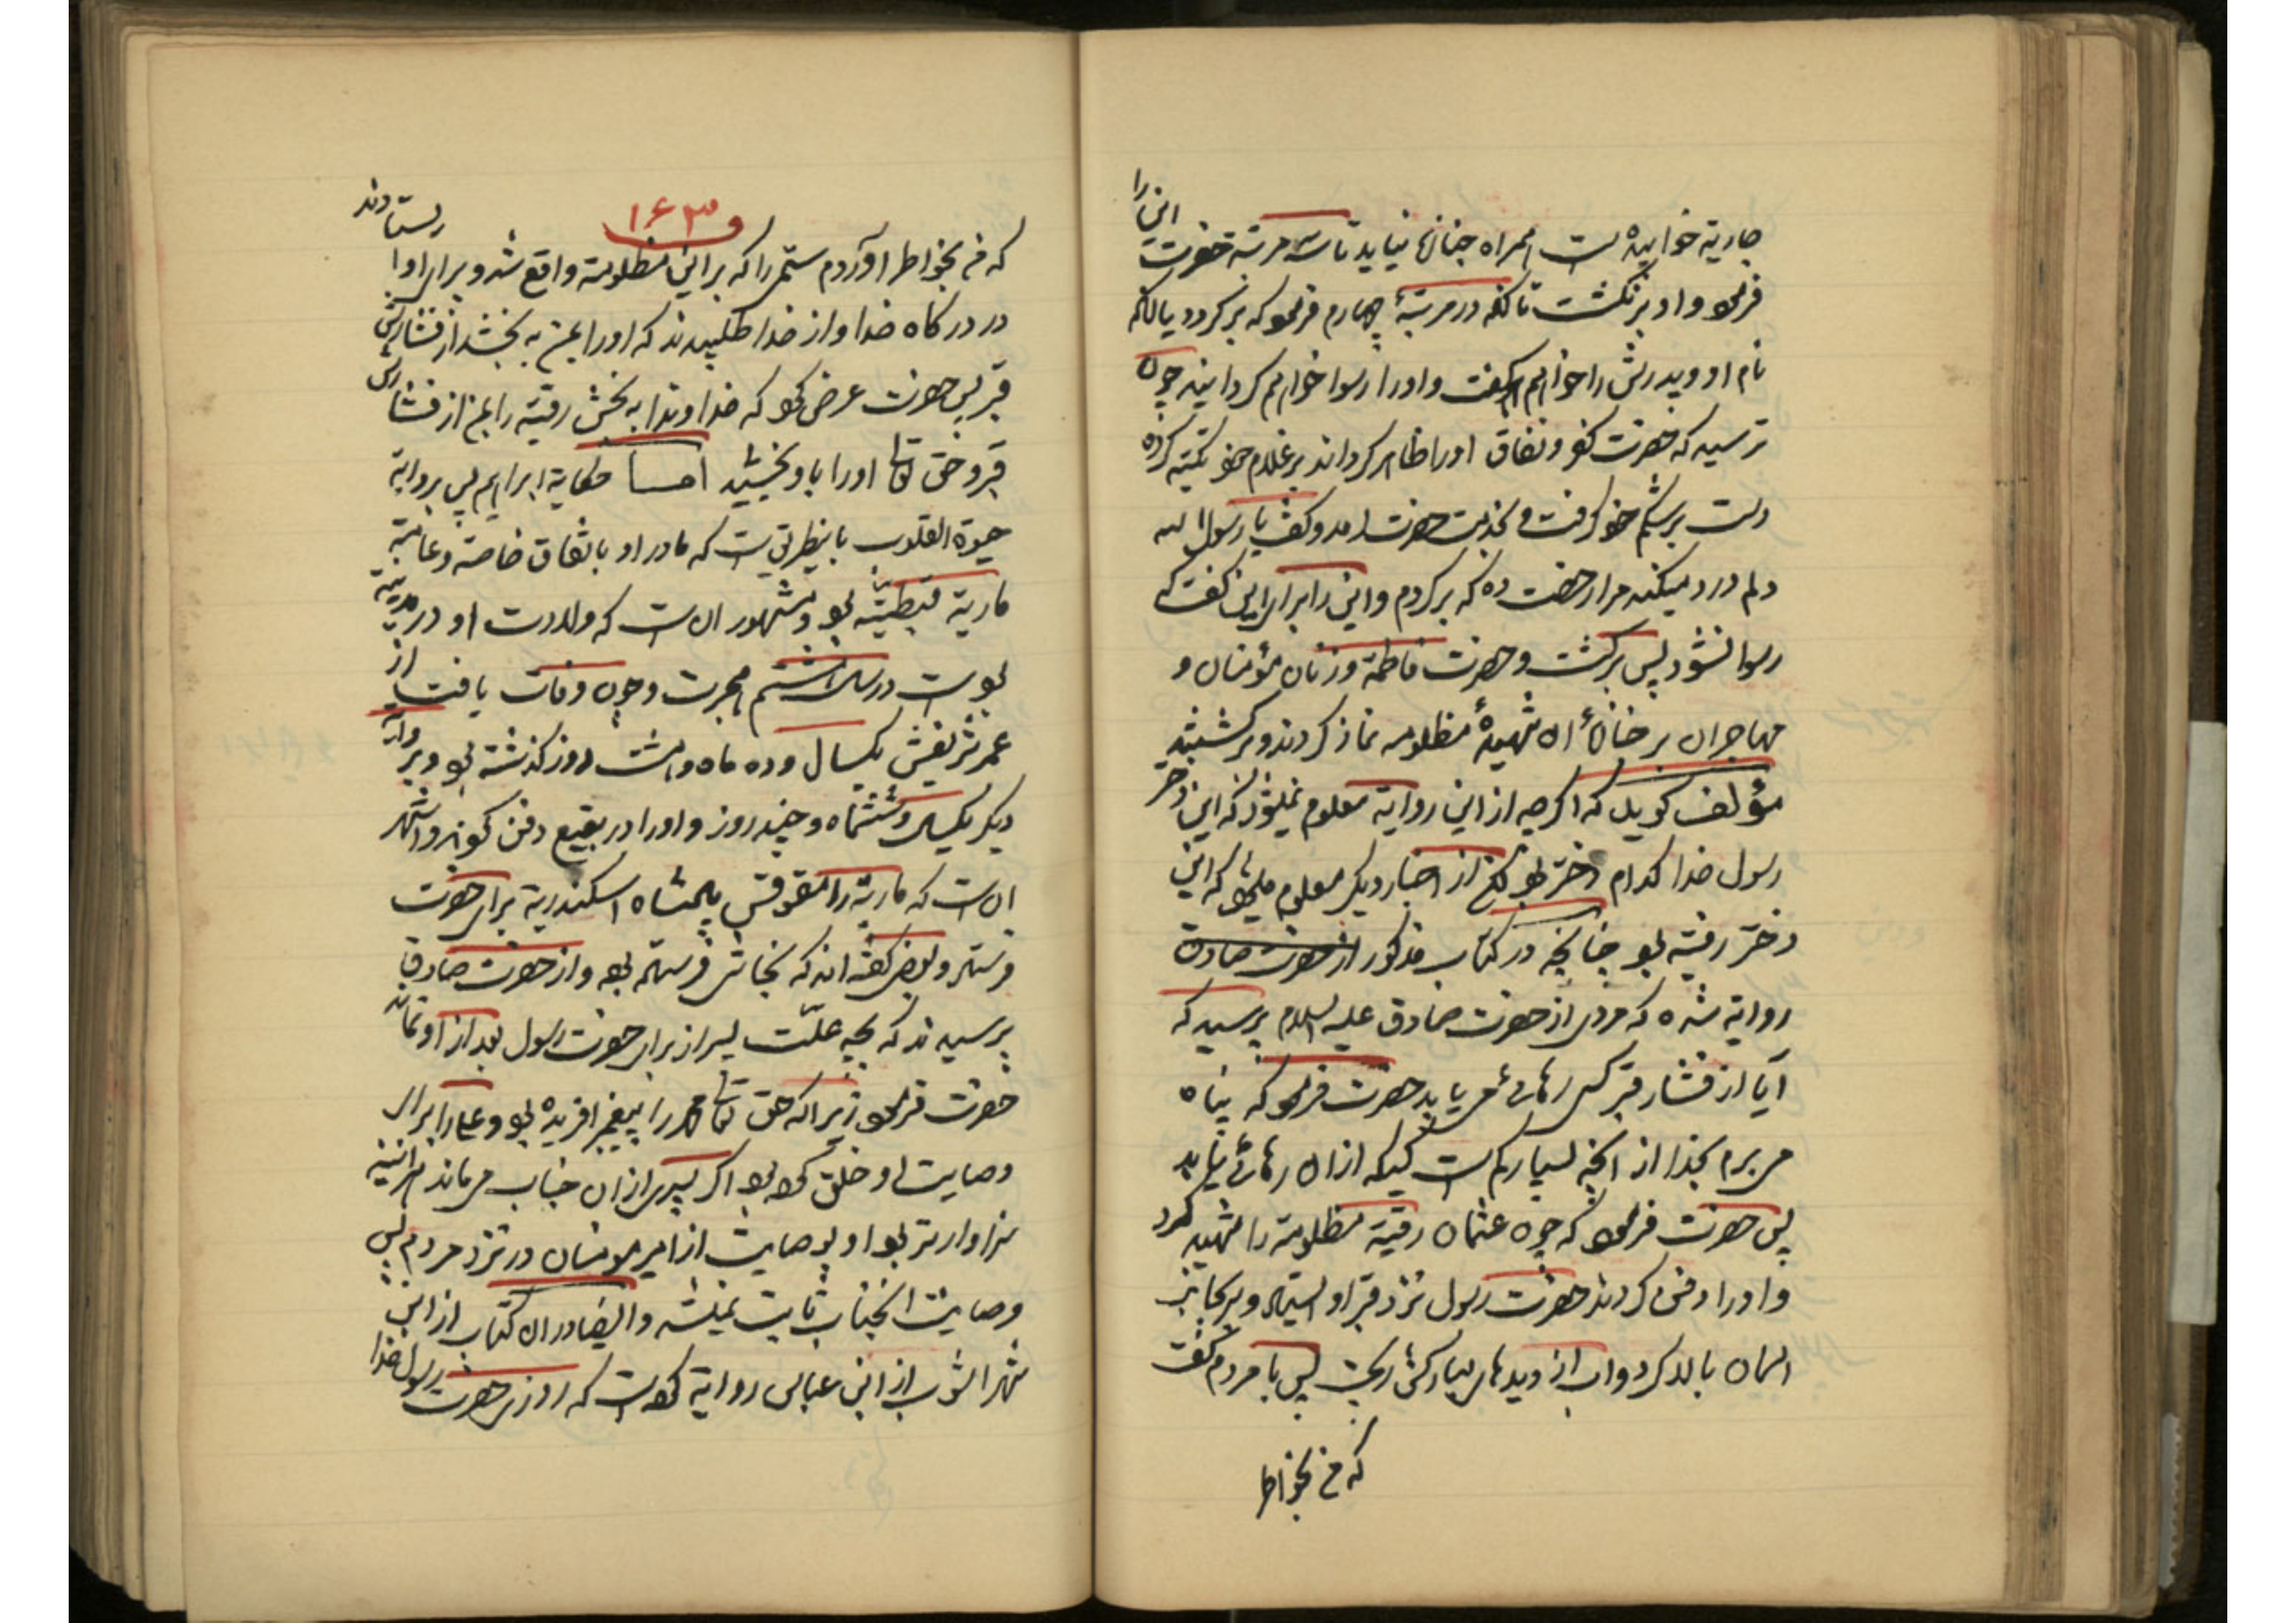 این را
جاریة خوابیده است همراه جنازه نیاید تا سه مرتبه حضرت
فرمود و او برنگشت تا آنکه در مرتبهٔ چهارم فرمود که برگردد یا آنکه
نام او و پدرش را خواهم گفت و او را رسوا خواهم گردانید چون
ترسید که حضرت کفر و نفاق او را ظاهر گرداند بر غلام خود تکیه کرده
دست بر شکم خود گرفت و بخدمت حضرت آمد و گفت یا رسول الله
دلم درد میکند مرا رخصت ده که برگردم و این را برای این گفت که
رسوا نشود پس برگشت و حضرت فاطمة و زنان مؤمنان و
مهاجران بر جنازهٔ آن شهیدهٔ مظلومه نماز کردند و برگشتند
مؤلف گوید که اگر چه از این روایة معلوم نمیشود که این دختر
رسول خدا کدام دختر بود لکن از اخبار دیگر معلوم میشود که این
دختر رقیة بود چنانچه در کتاب مذکور از حضرت صادق
روایة شده که مردی از حضرت صادق علیه السلام پرسید که
آیا از فشار قبر کسی رهائی می یابد حضرت فرمود که پناه
می برم بخدا از آنچه بسیار کم است کسیکه از آن رهائی نیابد
پس حضرت فرمود که چون عثمان رقیة مظلومة را شهید کرد
و او را دفن کردند حضرت رسول نزد قبر او ایستاد و سر بجانب
آسمان بالا کرد و آب از دیدهای مبارکش ریخت پس با مردم گفت
که من بخواطر
۱۶۳
که من بخواطر آوردم ستمی را که بر این مظلومة واقع شد و برای او ایستادند
در درگاه خدا و از خدا طلبیدند که او را بمن به بخشد از فشارش
قبر پس حضرت عرض کرد که خداوندا به بخش رقیة را بمن از فشارش
قبر و حق تعالی او را باو بخشید اما حکایة ابراهیم پس بروایة
حیوة القلوب باینطریق است که مادر او باتفاق خاصه و عامة
ماریة قبطیة بود و مشهور آنست که ولادت او در مدینه
بود است در سال هشتم هجرت و چون وفات یافت از
عمر شریفش یکسال و ده ماه و هشت روز گذشته بود و بروایة
دیگر یکسال و ششماه و چند روز و او را در بقیع دفن کردند و اشهر
آنست که ماریة را مقوقس پادشاه اسکندریة برای حضرت
فرستاد و بعضی گفته اند که نجاشی فرستاده بود و از حضرت صادق
پرسیدند که بچه علت پسر از برای حضرت رسول بعد از او نماند
حضرت فرمود زیرا که حق تعالی محمد را پیغمبر آفریده بود و علی را برای
وصایت او خلق کرده بود اگر پسری از آن جناب می ماند هرآینه
سزاوارتر بود او بوصایت از امیر مومنان در نزد مردم پس
وصایت آنجناب ثابت نمیشد و ایضا در آن کتاب از ابن
شهر آشوب از ابن عباس روایة کرده است که روزی حضرت رسول خدا